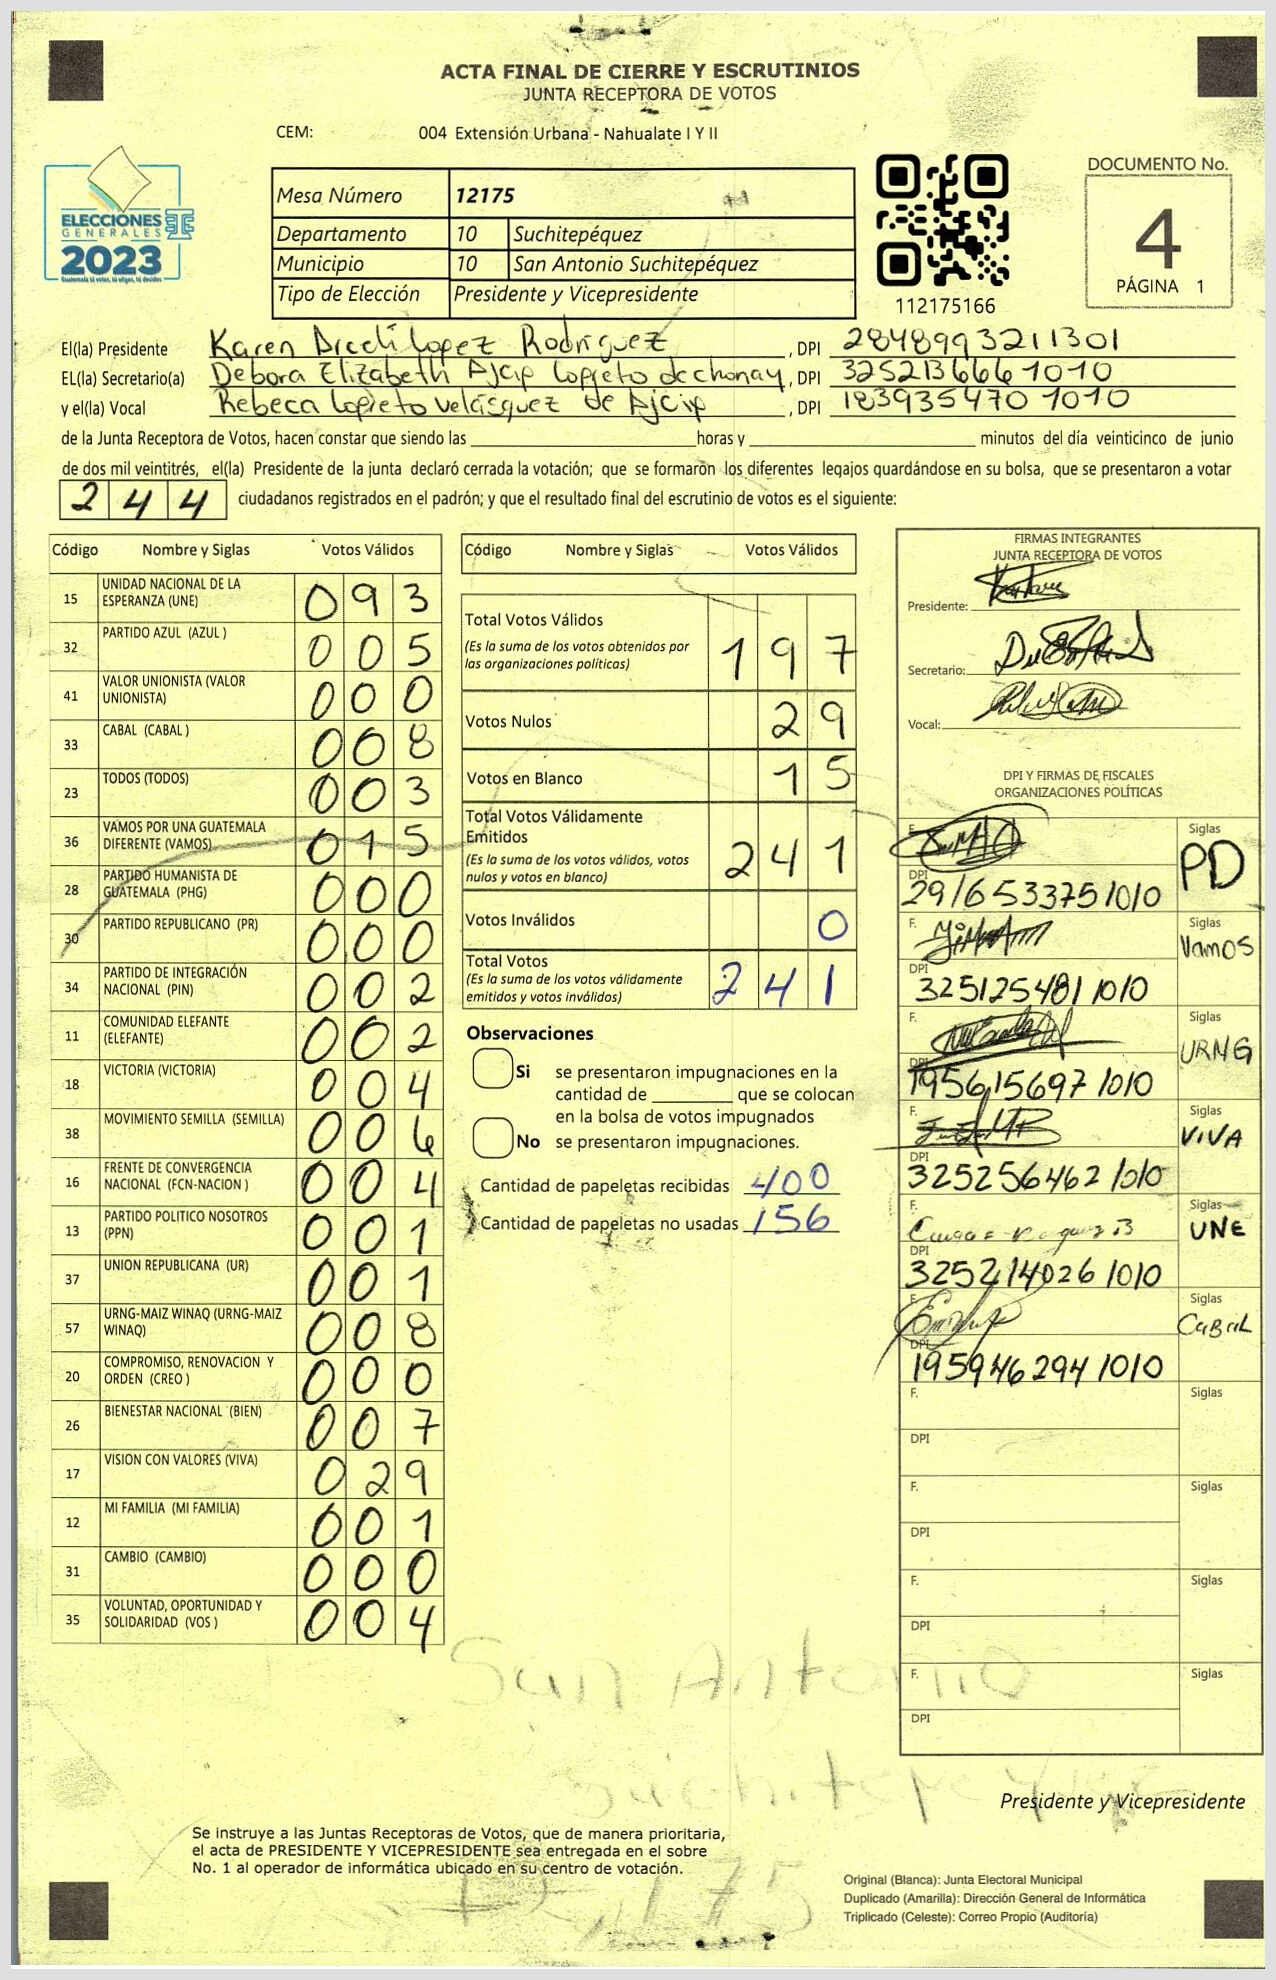 ACTA FINAL DE CIERRE Y ESCRUTINIOS
JUNTA RECEPTORA DE VOTOS
CEM: 004 Extensión Urbana - Nahualate I Y II
ELECCIONES
GENERALES
2023
Mesa Número 12175
Departamento 10 Suchitepéquez
Municipio 10 San Antonio Suchitepéquez
Tipo de Elección Presidente y Vicepresidente
112175166
DOCUMENTO No.
4
PÁGINA 1
El(la) Presidente Karen Areli Lopez Rodriguez, DPI 2848993211301
EL(la) Secretario(a) Debora Elizabeth Ajcip Lopreto de chonay, DPI 3252136661010
y el(la) Vocal Rebeca Lopreto Velásquez de Ajcip, DPI 1839354701010
de la Junta Receptora de Votos, hacen constar que siendo las horas y minutos del día veinticinco de junio
de dos mil veintitrés, el(la) Presidente de la junta declaró cerrada la votación; que se formaron los diferentes legajos quardándose en su bolsa, que se presentaron a votar
244 ciudadanos registrados en el padrón; y que el resultado final del escrutinio de votos es el siguiente:
Código Nombre y Siglas Votos Válidos
15 UNIDAD NACIONAL DE LA ESPERANZA (UNE) 093
32 PARTIDO AZUL (AZUL ) 005
41 VALOR UNIONISTA (VALOR UNIONISTA) 000
33 CABAL (CABAL ) 008
23 TODOS (TODOS) 003
36 VAMOS POR UNA GUATEMALA DIFERENTE (VAMOS) 015
28 PARTIDO HUMANISTA DE GUATEMALA (PHG) 000
30 PARTIDO REPUBLICANO (PR) 000
34 PARTIDO DE INTEGRACIÓN NACIONAL (PIN) 002
11 COMUNIDAD ELEFANTE (ELEFANTE) 002
18 VICTORIA (VICTORIA) 004
38 MOVIMIENTO SEMILLA (SEMILLA) 006
16 FRENTE DE CONVERGENCIA NACIONAL (FCN-NACION ) 004
13 PARTIDO POLITICO NOSOTROS (PPN) 001
37 UNION REPUBLICANA (UR) 001
57 URNG-MAIZ WINAQ (URNG-MAIZ WINAQ) 008
20 COMPROMISO, RENOVACION Y ORDEN (CREO ) 000
26 BIENESTAR NACIONAL (BIEN) 007
17 VISION CON VALORES (VIVA) 029
12 MI FAMILIA (MI FAMILIA) 001
31 CAMBIO (CAMBIO) 000
35 VOLUNTAD, OPORTUNIDAD Y SOLIDARIDAD (VOS ) 004
Código Nombre y Siglas Votos Válidos
Total Votos Válidos 197
(Es la suma de los votos obtenidos por
las organizaciones politicas)
Votos Nulos 29
Votos en Blanco 15
Total Votos Válidamente
Emitidos 241
(Es la suma de los votos válidos, votos
nulos y votos en blanco)
Votos Inválidos 0
Total Votos 241
(Es la suma de los votos válidamente
emitidos y votos inválidos)
Observaciones
Si se presentaron impugnaciones en la
cantidad de que se colocan
en la bolsa de votos impugnados
No se presentaron impugnaciones.
Cantidad de papeletas recibidas 400
Cantidad de papeletas no usadas 156
FIRMAS INTEGRANTES
JUNTA RECEPTORA DE VOTOS
Presidente:
Secretario:
Vocal:
DPI Y FIRMAS DE FISCALES
ORGANIZACIONES POLÍTICAS
F. Siglas PD
DPI 2916533751010
F. Siglas Vamos
DPI 3251254811010
F. Siglas URNG
DPI 1956156971010
F. Siglas VIVA
DPI 3252564621010
F. Siglas UNE
DPI 3252140261010
F. Siglas CABAL
DPI 1959462941010
F. Siglas
DPI
F. Siglas
DPI
F. Siglas
DPI
F. Siglas
DPI
San Antonio
Suchitepequez
Presidente y Vicepresidente
Se instruye a las Juntas Receptoras de Votos, que de manera prioritaria,
el acta de PRESIDENTE Y VICEPRESIDENTE sea entregada en el sobre
No. 1 al operador de informática ubicado en su centro de votación.
Original (Blanca): Junta Electoral Municipal
Duplicado (Amarilla): Dirección General de Informática
Triplicado (Celeste): Correo Propio (Auditoría)